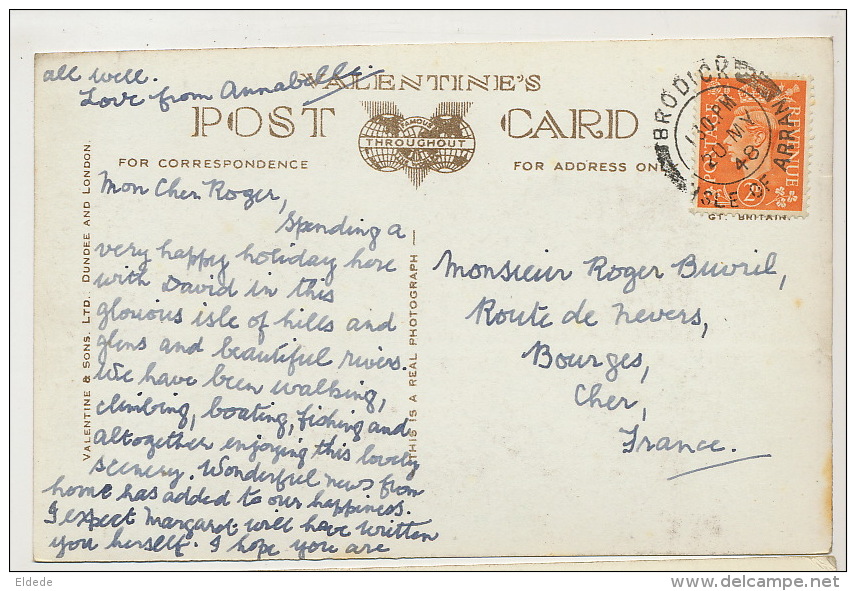 all well.
Love from Annabelle.
VALENTINE'S
POST CARD
FAMOUS
THROUGHOUT
THE WORLD
FOR CORRESPONDENCE
FOR ADDRESS ONLY
BRODICK
1 30 PM
20 MY
48
ISLE OF ARRAN
POSTAGE
REVENUE
2D
GT. BRITAIN.
VALENTINE & SONS. LTD. DUNDEE AND LONDON.
THIS IS A REAL PHOTOGRAPH
Mon Cher Roger,
Spending a
very happy holiday here
with David in this
glorious isle of hills and
glens and beautiful rivers.
We have been walking,
climbing, boating, fishing and
altogether enjoying this lovely
scenery. Wonderful news from
home has added to our happiness.
I expect Margaret will have written
you herself. I hope you are
Monsieur Roger Buvril,
Route de Nevers,
Bourges,
Cher,
France.
Eldede
delcampe.net